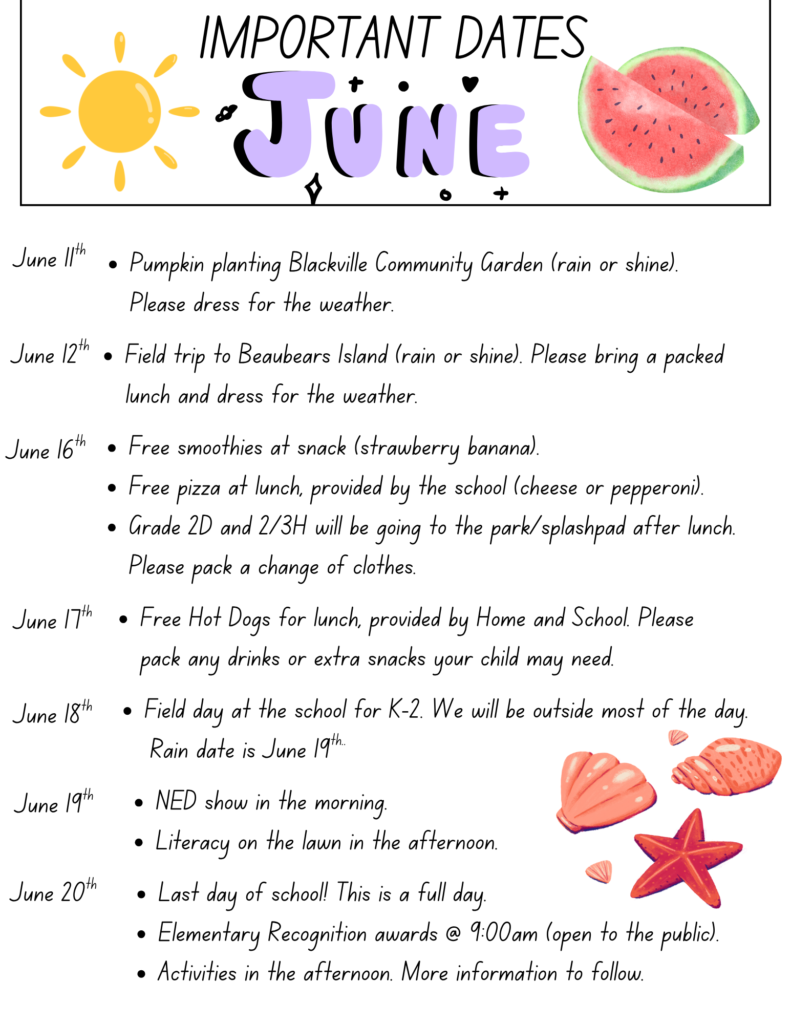 IMPORTANT DATES
JUNE
June 11th • Pumpkin planting Blackville Community Garden (rain or shine).
Please dress for the weather.
June 12th • Field trip to Beaubears Island (rain or shine). Please bring a packed
lunch and dress for the weather.
June 16th • Free smoothies at snack (strawberry banana).
• Free pizza at lunch, provided by the school (cheese or pepperoni).
• Grade 2D and 2/3H will be going to the park/splashpad after lunch.
Please pack a change of clothes.
June 17th • Free Hot Dogs for lunch, provided by Home and School. Please
pack any drinks or extra snacks your child may need.
June 18th • Field day at the school for K-2. We will be outside most of the day.
Rain date is June 19th..
June 19th • NED show in the morning.
• Literacy on the lawn in the afternoon.
June 20th • Last day of school! This is a full day.
• Elementary Recognition awards @ 9:00am (open to the public).
• Activities in the afternoon. More information to follow.